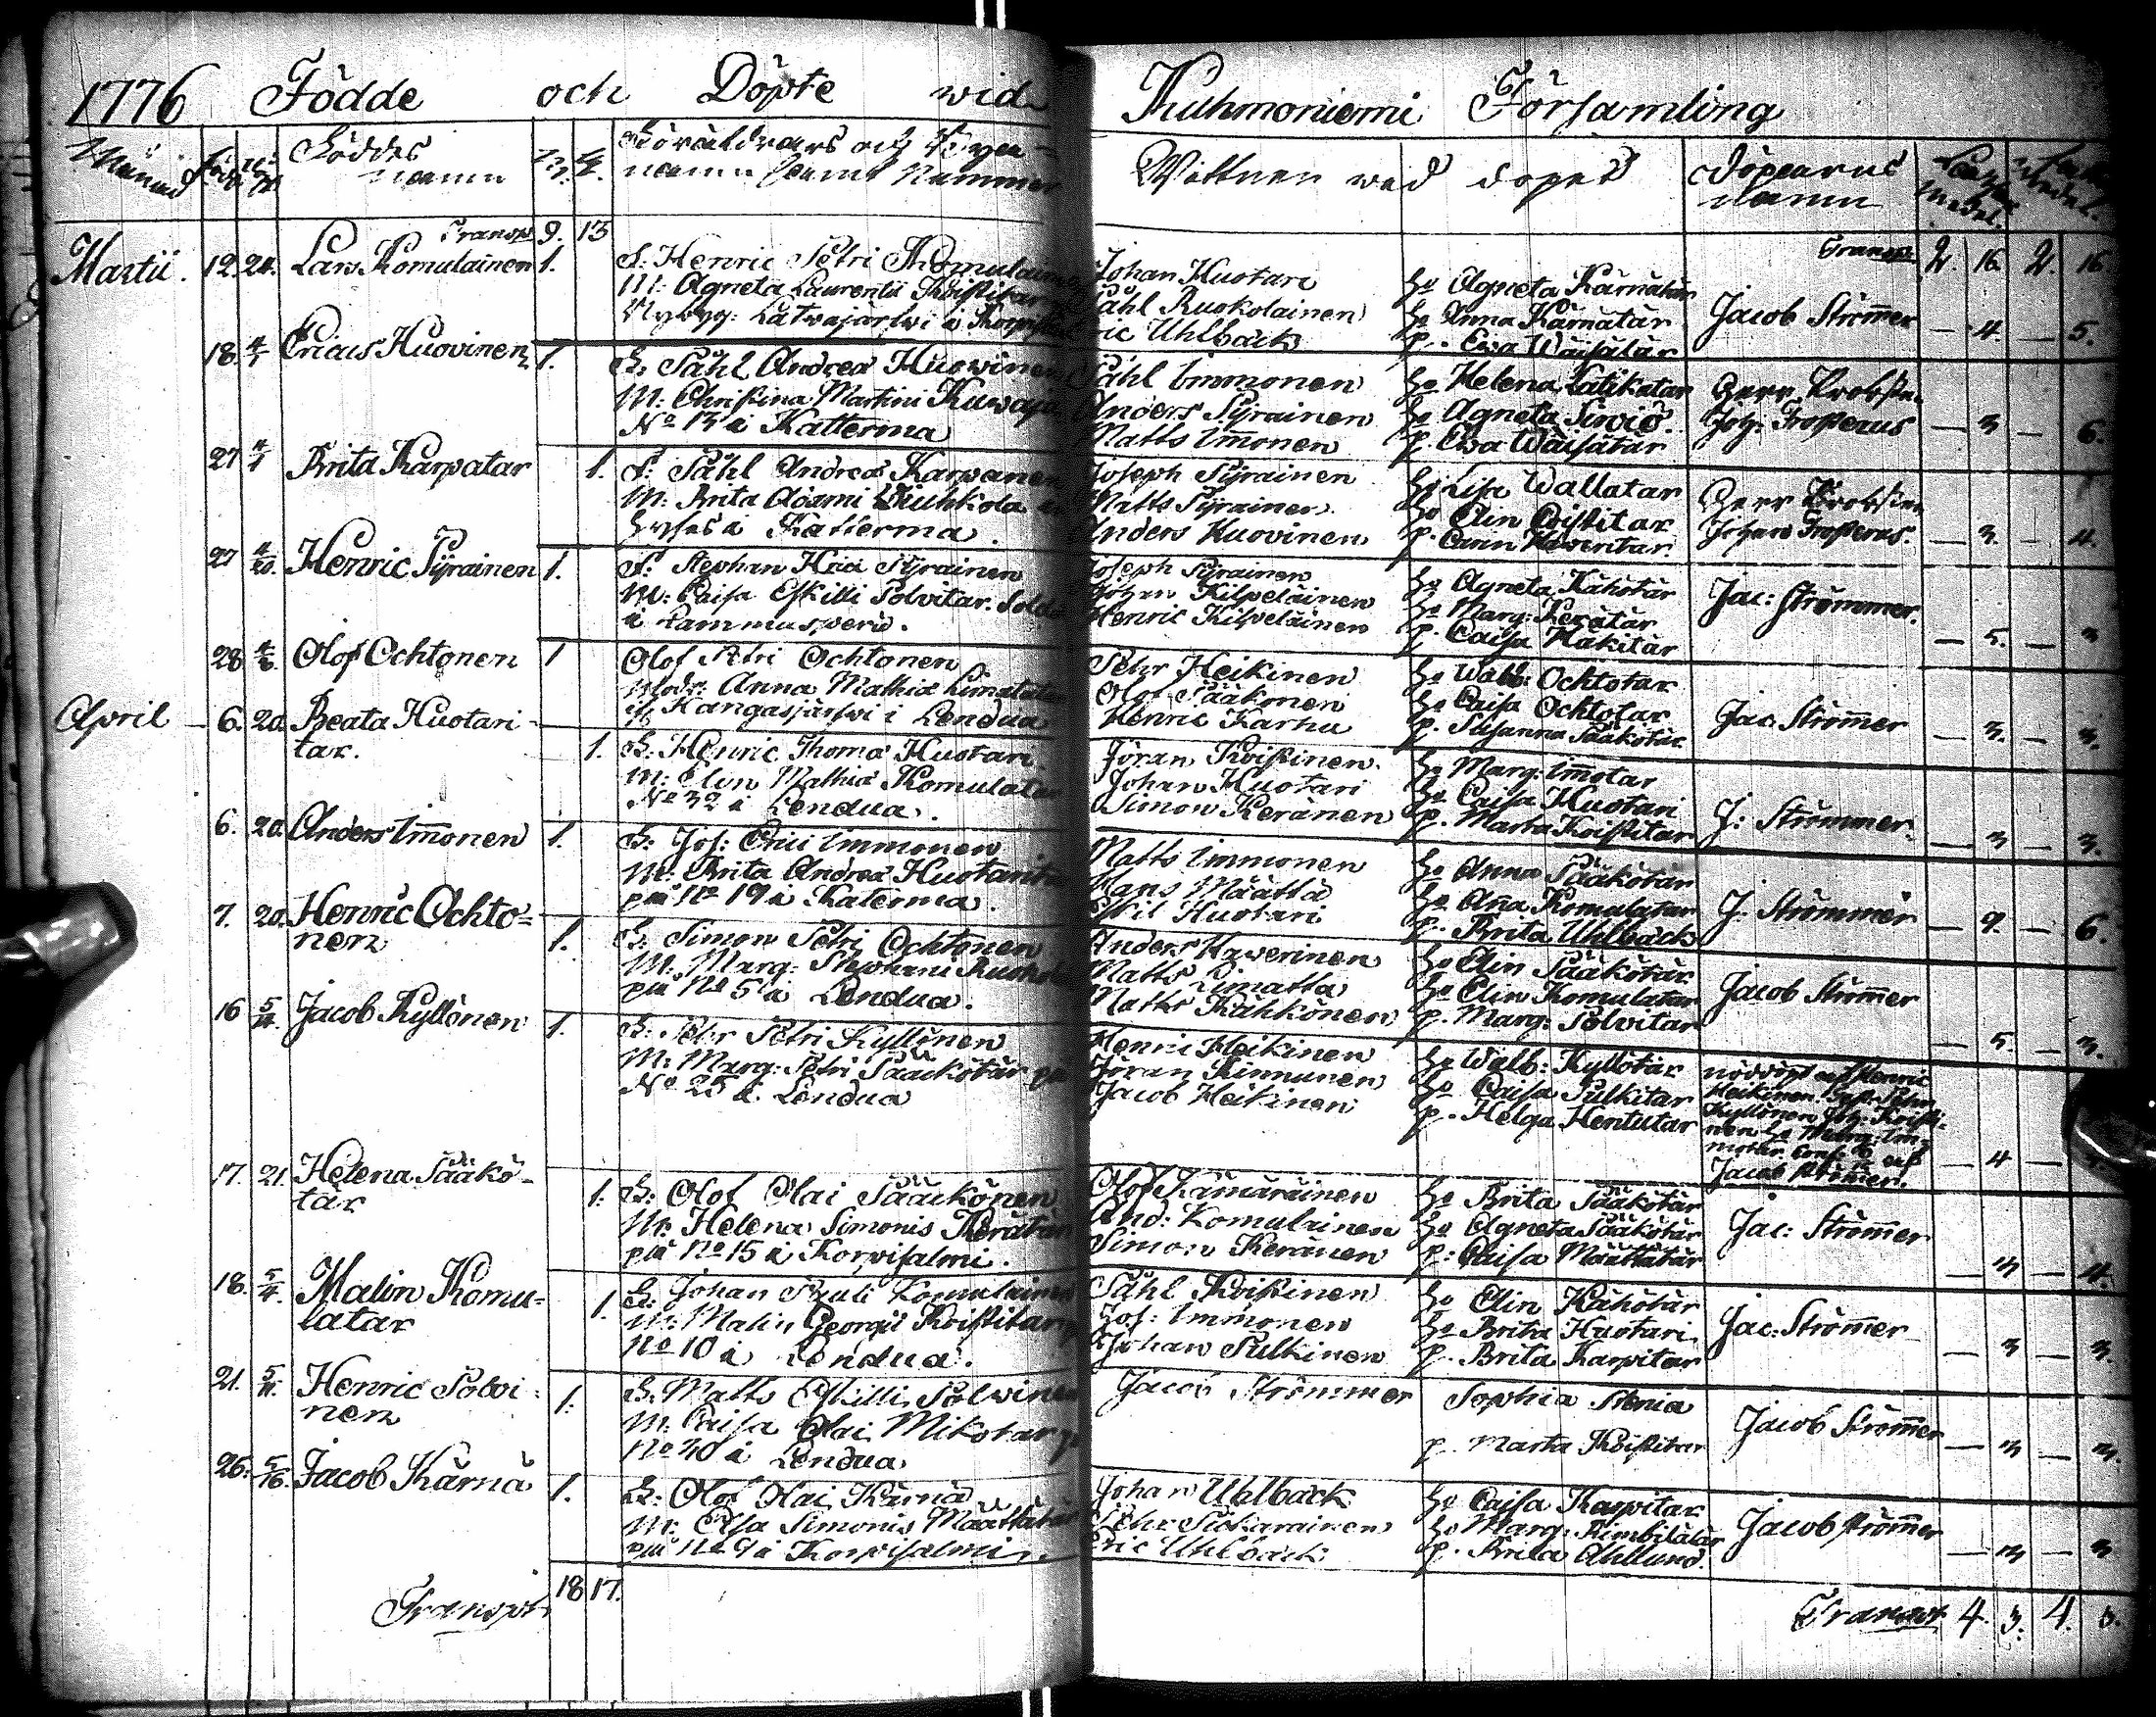 1776 Födde och Döpte wid Kuhmoniemi Församling
Månad Född Döpt Föddes namn
namn samt Nummer
Wittnen wid dopet
Döparens namn
Transp. 9. 13
Transp. 2. 16. 2. 16
Martii. 12. 24. Lars Komulainen 1.
F. Henric Petri Komulainen
M: Agneta Laurentii Koistitar
Nybyg: Latwajärfwi i Korpisal
Johan Huotari
Påhl Ruokolainen
Eric Uhlbäck
Ho Agneta Kärnätär
Ho Anna Kärnätär
p. Ewa Wäisätär
Jacob Strömer — 4. — 5.
18. 4/1 Ericus Huovinen 1.
B. Påhl Andreæ Huowinen
M: Christina Martini Kuwaja
No 13 i Katterma
Påhl Immonen
Anders Pyrainen
Matts Imonen
Ho Helena Latikatar
Ho Agneta Sirviö.
p. Ewa Wäisätär
Herr Probsten
Joh: Frosterus — 3 — 6.
27 4/1 Brita Karpatar 1.
F: Påhl Andreæ Karpanen
M: Brita Adami
Hyses i Katterma.
Joseph Pyrainen
Matts Pyrainen
Anders Huovinen
Ho Lisa Wallatar
Ho Elin Koistitar
p.
Herr Probsten
Johan Frosterus. — 3. — 4.
27 4/20. Henric Pyrainen 1.
F: Stephan Pyrainen
M: Caisa Eskilli Polvitar. Sold
i Lammasperä.
Joseph Pyrainen
Johan Kilpeläinen
Henric Kilpeläinen
Ho Agneta Kähötär
Ho Marg: Kerätär
p. Caisa Häkitär
Jac: Strömmer. — 5. — 3
28 Olof Ochtonen 1
Olof Petri Ochtonen
Modr: Anna Mathiæ Limatatar
if Kangasjärfwi i Lendua
Pehr Heikinen
Olof Pääkönen
Henric Karhu
Ho Walb: Ochtotar
Ho Caisa Ochtotar
p. Susanna Pääkötär
Jac. Strömer — 3. — 3.
April — 6. 20. Beata Huotari-
tar. 1.
B. Henric Thomæ Huotari
M: Elin Mathiæ Komulatar
No 32 i Lendua.
Jöran Koistinen.
Johan Huotari
Simon Keränen
Ho Marg: Imotar
Ho Caisa Huotari
p. Marta Koistitar
J: Strömmer. — 3 — 3.
6. 20. Anders Imonen 1.
B: Jos: Erici Immonen
M: Brita Andreæ Huotaritar
på No 19 i Katerma.
Matts Immonen
Hans Määttä
Eskil Huotari
Ho Anna Pääkötär
Ho Ana Komulatar
p. Brita Uhlbäck
J: Strömmer — 9. — 6.
7. 20. Henric Ochto-
nen 1.
B. Simon Petri Ochtonen
M: Marg: Stephani
på No 5 i Lendua.
Anders Kawerinen
Matts Limatta
Matts Kähkönen
Ho Elin Pääkötär
Ho Elin Komulatar
p. Marg: Polvitar
Jacob Strömer — 5. — 3.
16 5/ Jacob Kyllönen 1.
B. Pehr Petri Kyllönen
M: Marg: Petri Pääkötär på
No 25 i Lendua
Henric Heikinen
Jöran Kinnunen
Jacob Heikinen
Ho Walb: Kyllötär
Ho Caisa Pulkitar
p. Helga Hentutar
nöddöpt af Henric
Heikinen
Kyllönen
Jacob Strömer. — 4 —
17. 21. Helena Pääkö-
tär 1.
B: Olof Olai Pääkönen
M: Helena Simonis Kerätär
på No 15 i Korpisalmi.
Olof Kämäräinen
And: Komulainen
Simon Keränen
Ho Brita Pääkötär
Ho Agneta Pääkötär
p: Caisa Määttätär
Jac: Strömer — 3 — 4.
18. 5/4. Malin Komu-
latar 1.
B. Johan Pauli Komulainen
M: Malin Georgii Koistitar
No 10 i Lendua.
Påhl Koistinen
Jos: Immonen
Johan Pulkinen
Ho Elin Kähötär
Ho Brita Huotari
p. Brita Karpitar
Jac: Strömer — 3 — 3.
21. 5/11. Henric Polvi-
nen 1.
B. Matts Eskilli Polwinen
M. Caisa Olai Mikotar
No 40 i Lendua
Jacob Strömmer
Sophia Stenia
p. Marta Koistitar
Jacob Strömer — 3 — 3.
26. 5/16. Jacob Kärnä 1.
B: Olof Olai Kärnä
M: Elsa Simonis Määttätär
på No 9 i Korpisalmi.
Johan Uhlbäck
Pehr Piskarainen
Eric Uhlbäck
Ho Caisa Karpitar
Ho Marg: Kimbilätär
p. Brita Ahllund.
Jacob Strömer — 3 — 3
Transpt 18 17.
Transpt 4. 3. 4. 3.